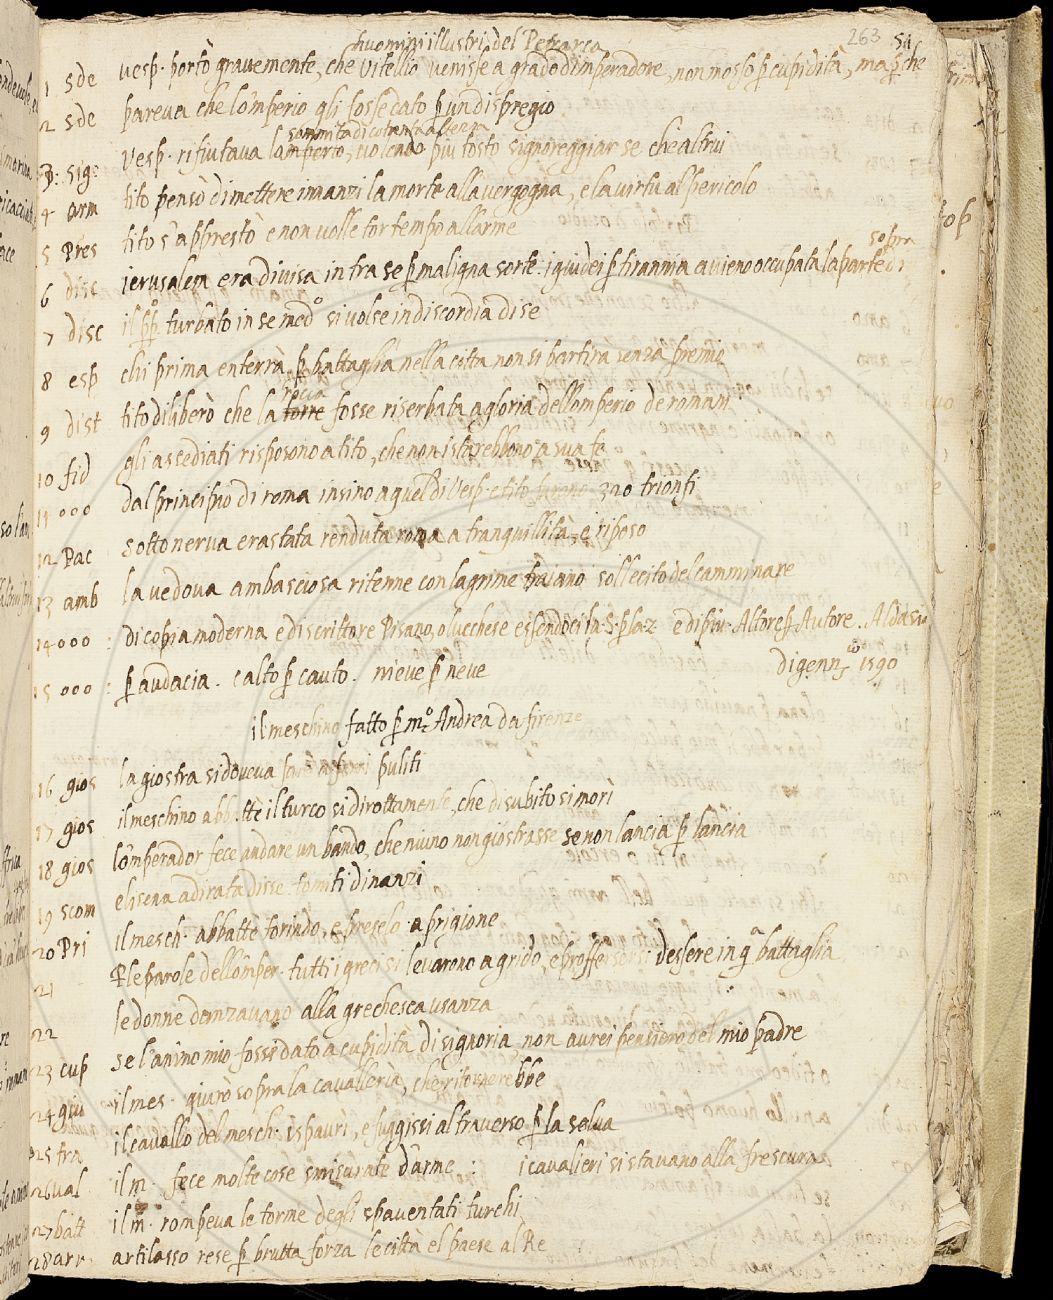 huomini illustri del Petrarca
263 54
1 sde vesp. portò gravemente, che Vitellio venisse a grado d'imperadore, non mosso p cupidità, ma pche
2 sde pareva che lo'mperio gli fosse dato p un dispregio
sommità di cotanta altezza
3: sig. Vesp. rifiutava la'mperio, volendo più tosto signoreggiar se che altrui
4 arm tito pensò di mettere innanzi la morte alla vergogna, e la virtù al pericolo
5 Pres tito s'apprestò e non volle tor tempo all'arme
sopra
6 disc jerusalem era divisa infra se p maligna sorte. i giudei p tirannia avieno occupata la parte di
7 disc il pp.o turbato in se med.o si volse in discordia di se
8 esp chi prima enterrà p battaglia nella città non si partirà senza premio
rocca
9 dist tito diliberò che la torre fosse riserbata a gloria dello'mperio de romani
10 fid gli assediati risposono a tito, che non istarebbono a sua fe
11 ooo dal principio di roma insino a quel di Vesp. e tito furono 320 trionfi
12 Pac sotto nerva era stata renduta roma a tranquillità, e riposo
13 amb la vedova ambasciosa ritenne con lagrime traiano sollecito del camminare
14 ooo : di copia moderna e di scrittore Pisano, o lucchese essendoci la .S. p la .z. e di piu. Altore p Autore. Alda
15 ooo : p audacia. calto p cauto. nieve p neve
di genn.o 1590
il meschino fatto p m.o Andrea da firenze
16 gios la giostra si doveva fare a ferri puliti
17 gios il meschino abb..ttè il turco si dirottamente, che di subito si morì
18 gios lo'mperador fece andare un bando, che niuno non giostrasse se non lancia p lancia
19 scom elisena adirata disse: tomiti dinanzi
20 Pri il mesch. abbattè torindo, e preselo a prigione
21 p le parole dello'mper. tutti i greci si levarono a grido, e proffersersi d'essere in qa battaglia
22 le donne danzavano alla grechesca usanza
23 cup se l'animo mio fosse dato a cupidità di signoria non aurei pensiero del mio padre
24 giu il mes. giurò sopra la cavalleria, che ritornerebbe
25 fra il cavallo del mesch. ispaurì, e fuggissi al traverso p la selva
26 val il m. fece molte cose smisurate d'arme : i cavalieri si stavano alla frescura
27 batt il m. rompeva le torme degli spaventati turchi
28 arr artilasso rese p brutta forza le città e'l paese al Re